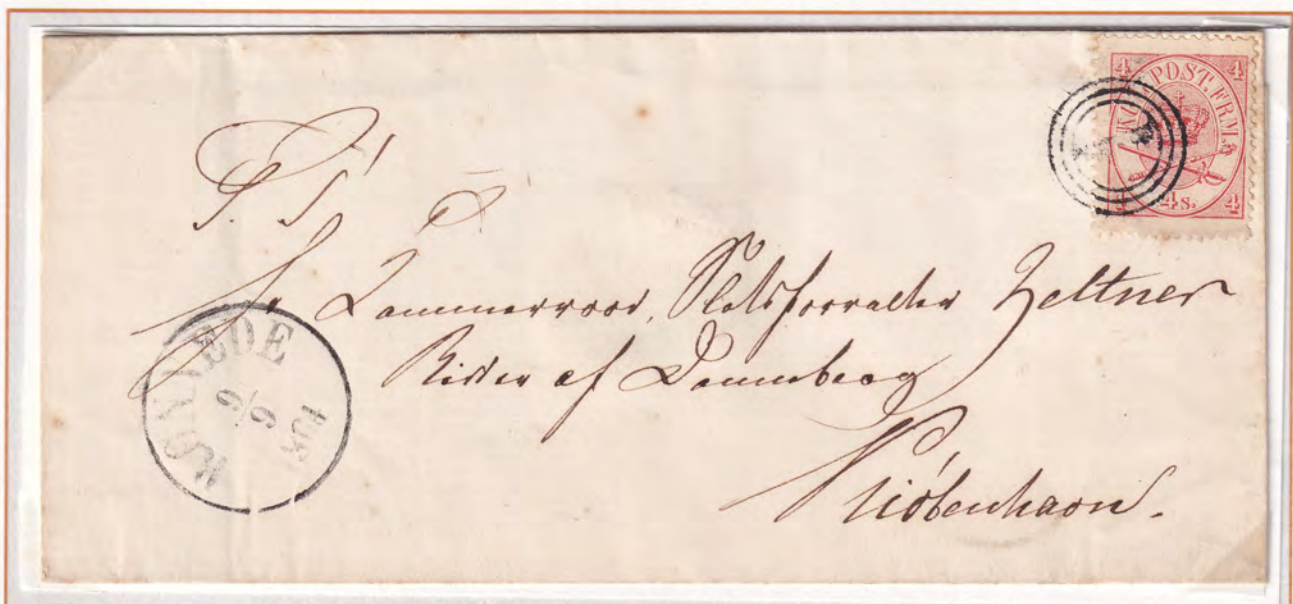 4 KGL. POST. FRM. 4
4 4s. 4
S. T.
Hr Kammerraad, Slotsforvalter Zeltner
Ridder af Dannebrog
Kiöbenhavn.
RØNNEDE